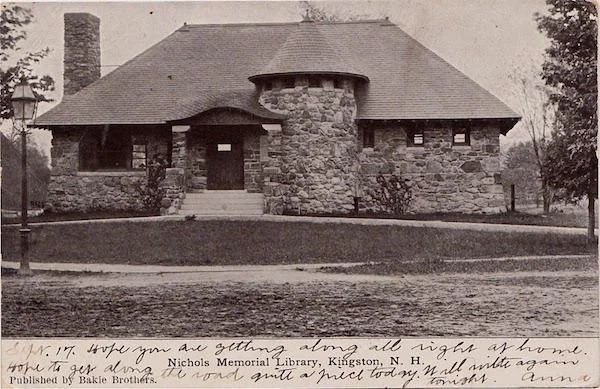 Sept. 17. Hope you are getting along all right at home.
Nichols Memorial Library, Kingston, N. H.
Hope to get along the road quite a piece today. Will write again
Published by Bakie Brothers.
tonight. Anna